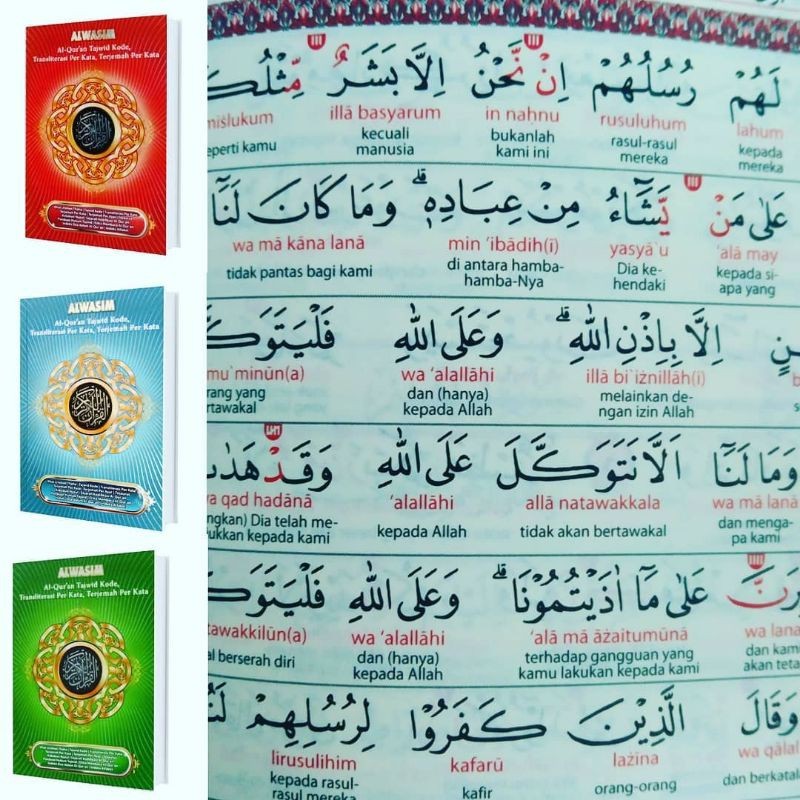 ALWASIM
Al-Qur'an Tajwid Kode,
Transliterasi Per Kata, Terjemah Per Kata
ALWASIM
Al-Qur'an Tajwid Kode,
Transliterasi Per Kata, Terjemah Per Kata
ALWASIM
Al-Qur'an Tajwid Kode,
Transliterasi Per Kata, Terjemah Per Kata
لَهُمْ رُسُلُهُمْ اِنْ نَّحْنُ اِلَّا بَشَرٌ مِّثْلُكُ
lahum rusuluhum in nahnu illā basyarum miślukum
kepada mereka rasul-rasul mereka bukanlah kami ini kecuali manusia eperti kamu
عَلٰى مَنْ يَّشَاۤءُ مِنْ عِبَادِهٖۗ وَمَا كَانَ لَنَآ
'alā may yasyā`u min 'ibādih(ī) wa mā kāna lanā
kepada si-apa yang Dia ke-hendaki di antara hamba-hamba-Nya tidak pantas bagi kami
ـنٍ اِلَّا بِاِذْنِ اللّٰهِۗ وَعَلَى اللّٰهِ فَلْيَتَوَكَّ
illā bi`iżnillāh(i) wa 'alallāhi mu`minūn(a)
melainkan de-ngan izin Allah dan (hanya) kepada Allah rang yang rtawakal
وَمَا لَنَآ اَلَّا نَتَوَكَّلَ عَلَى اللّٰهِ وَقَدْ هَدٰىـ
wa mā lanā allā natawakkala 'alallāhi wa qad hadānā
dan menga-pa kami tidak akan bertawakal kepada Allah ngkan) Dia telah me-ukkan kepada kami
ـرَنَّ عَلٰى مَآ اٰذَيْتُمُوْنَاۗ وَعَلَى اللّٰهِ فَلْيَتَوَكَّ
wa lana 'alā mā āżaitumūnā wa 'alallāhi tawakkilūn(a)
dan kami akan teta terhadap gangguan yang kamu lakukan kepada kami dan (hanya) kepada Allah al berserah diri
وَقَالَ الَّذِيْنَ كَفَرُوْا لِرُسُلِهِمْ لَنُ
wa qālal lażīna kafarū lirusulihim
dan berkatal orang-orang kafir kepada rasul-rasul mereka